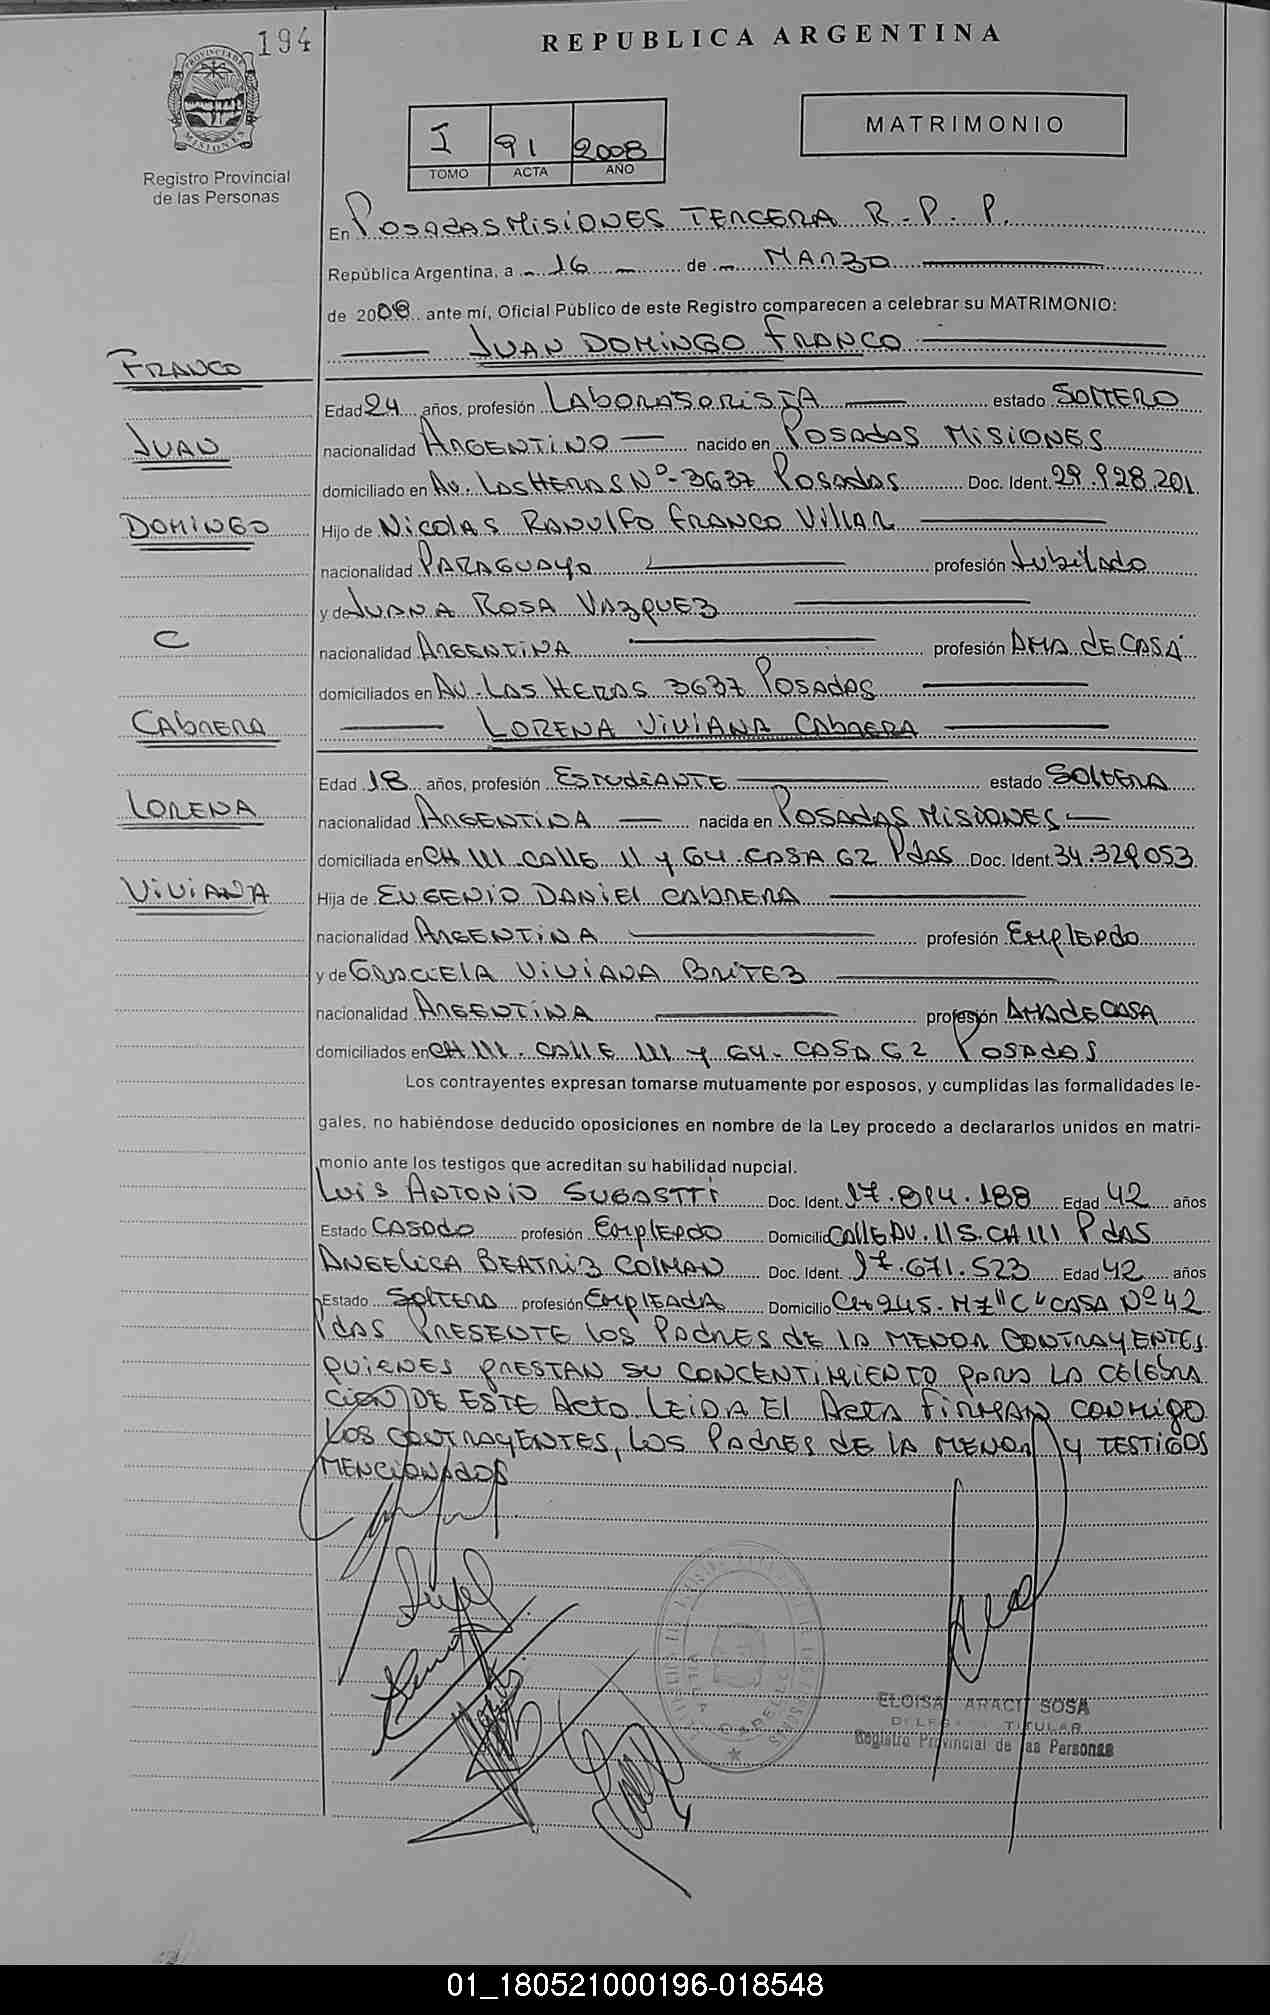 194
REPUBLICA ARGENTINA
PROVINCIA DE MISIONES
Registro Provincial
de las Personas
I 91 2008
TOMO ACTA AÑO
MATRIMONIO
En POSADAS MISIONES TERCERA R.P.P.
República Argentina, a 16 de MARZO
de 2008 ante mí, Oficial Público de este Registro comparecen a celebrar su MATRIMONIO:
JUAN DOMINGO FRANCO
FRANCO
Edad 24 años, profesión LABORATORISTA estado SOLTERO
JUAN
nacionalidad ARGENTINO nacido en POSADAS MISIONES
domiciliado en AV. LAS HERAS Nº-3637 POSADAS Doc. Ident. 29.928.201
DOMINGO
Hijo de NICOLAS RANULFO FRANCO VILLAR
nacionalidad PARAGUAYO profesión JUBILADO
y de JUANA ROSA VAZQUEZ
C
nacionalidad ARGENTINA profesión AMA DE CASA
domiciliados en AV. LAS HERAS 3637 POSADAS
CABRERA
LORENA VIVIANA CABRERA
Edad 18 años, profesión ESTUDIANTE estado SOLTERA
LORENA
nacionalidad ARGENTINA nacida en POSADAS MISIONES
domiciliada en CH III CALLE 11 y 64 CASA 62 PDAS Doc. Ident. 34.329.053
VIVIANA
Hija de EUGENIO DANIEL CABRERA
nacionalidad ARGENTINA profesión EMPLEADO
y de GRACIELA VIVIANA BRITEZ
nacionalidad ARGENTINA profesión AMA DE CASA
domiciliados en CH III. CALLE III y 64. CASA 62 POSADAS
Los contrayentes expresan tomarse mutuamente por esposos, y cumplidas las formalidades le-
gales, no habiéndose deducido oposiciones en nombre de la Ley procedo a declararlos unidos en matri-
monio ante los testigos que acreditan su habilidad nupcial.
LUIS ANTONIO SUGASTTI Doc. Ident. 17.814.188 Edad 42 años
Estado CASADO profesión EMPLEADO Domicilio CALLE AV. 115. CH III PDAS
ANGELICA BEATRIZ COLMAN Doc. Ident. 17.671.523 Edad 42 años
Estado SOLTERA profesión EMPLEADA Domicilio CH 245. MZ "C" CASA Nº 42
PDAS PRESENTE LOS PADRES DE LA MENOR CONTRAYENTES
QUIENES PRESTAN SU CONCENTIMIENTO PARA LA CELEBRA
CION DE ESTE ACTO LEIDA EL ACTA FIRMAN CONMIGO
LOS CONTRAYENTES, LOS PADRES DE LA MENOR y TESTIGOS
MENCIONADOS
ELOISA ARACI SOSA
DELEGADA TITULAR
Registro Provincial de las Personas
01_180521000196-018548